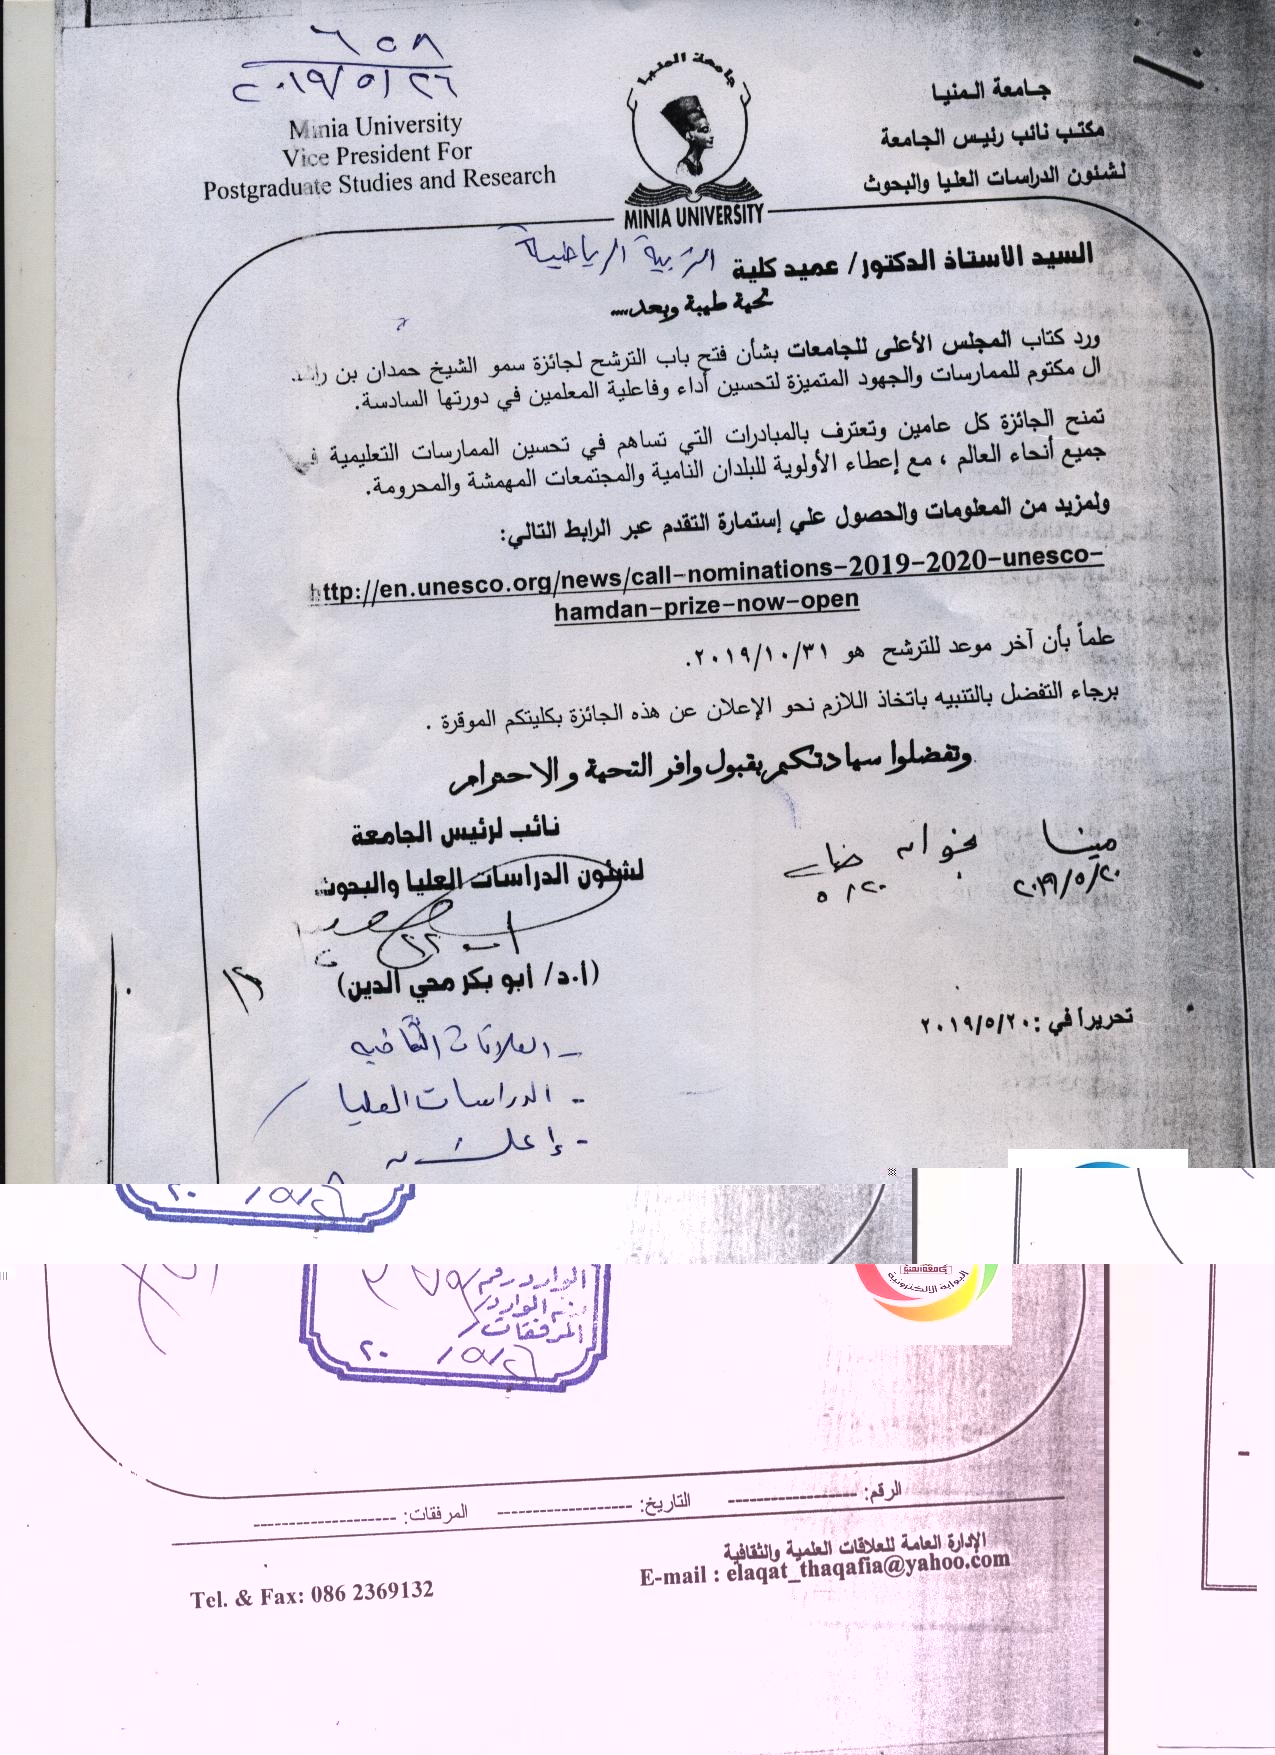 ٦٥٨
٢٠١٩/٥/٢٦
Minia University
Vice President For
Postgraduate Studies and Research
جامعة المنيا
MINIA UNIVERSITY
جامعة المنيا
مكتب نائب رئيس الجامعة
لشئون الدراسات العليا والبحوث
السيد الأستاذ الدكتور/ عميد كلية التربية الرياضية
تحية طيبة وبعد....
ورد كتاب المجلس الأعلى للجامعات بشأن فتح باب الترشح لجائزة سمو الشيخ حمدان بن راشد
ال مكتوم للممارسات والجهود المتميزة لتحسين أداء وفاعلية المعلمين في دورتها السادسة.
تمنح الجائزة كل عامين وتعترف بالمبادرات التي تساهم في تحسين الممارسات التعليمية في
جميع أنحاء العالم ، مع إعطاء الأولوية للبلدان النامية والمجتمعات المهمشة والمحرومة.
ولمزيد من المعلومات والحصول علي إستمارة التقدم عبر الرابط التالي:
http://en.unesco.org/news/call-nominations-2019-2020-unesco-
hamdan-prize-now-open
علماً بأن آخر موعد للترشح هو ٢٠١٩/١٠/٣١.
برجاء التفضل بالتنبيه باتخاذ اللازم نحو الإعلان عن هذه الجائزة بكليتكم الموقرة .
وتفضلوا سيادتكم بقبول وافر التحية والاحترام
نائب لرئيس الجامعة
لشئون الدراسات العليا والبحوث
مينا
٢٠١٩/٥/٢٠
٥/٢٠
(أ.د/ أبو بكر محي الدين)
تحريراً في :٢٠١٩/٥/٢٠
- العلاقات الثقافية
- الدراسات العليا
- إعلان
٢٠ /٥/٢٦
الوارد رقم
المرفقات
٢٠ /٥/٢٦
جامعة المنيا
البوابة الالكترونية
الرقم: ------------------ التاريخ: ------------------- المرفقات: --------------------
الإدارة العامة للعلاقات العلمية والثقافية
E-mail : elaqat_thaqafia@yahoo.com
Tel. & Fax: 086 2369132